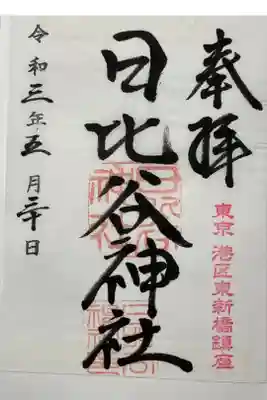 奉拝
東京 港区東新橋鎮座
日比谷神社
令和三年五月三十日